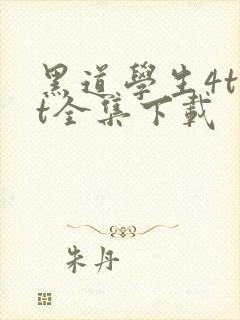 黑道學生4t
t全集下載
朱丹